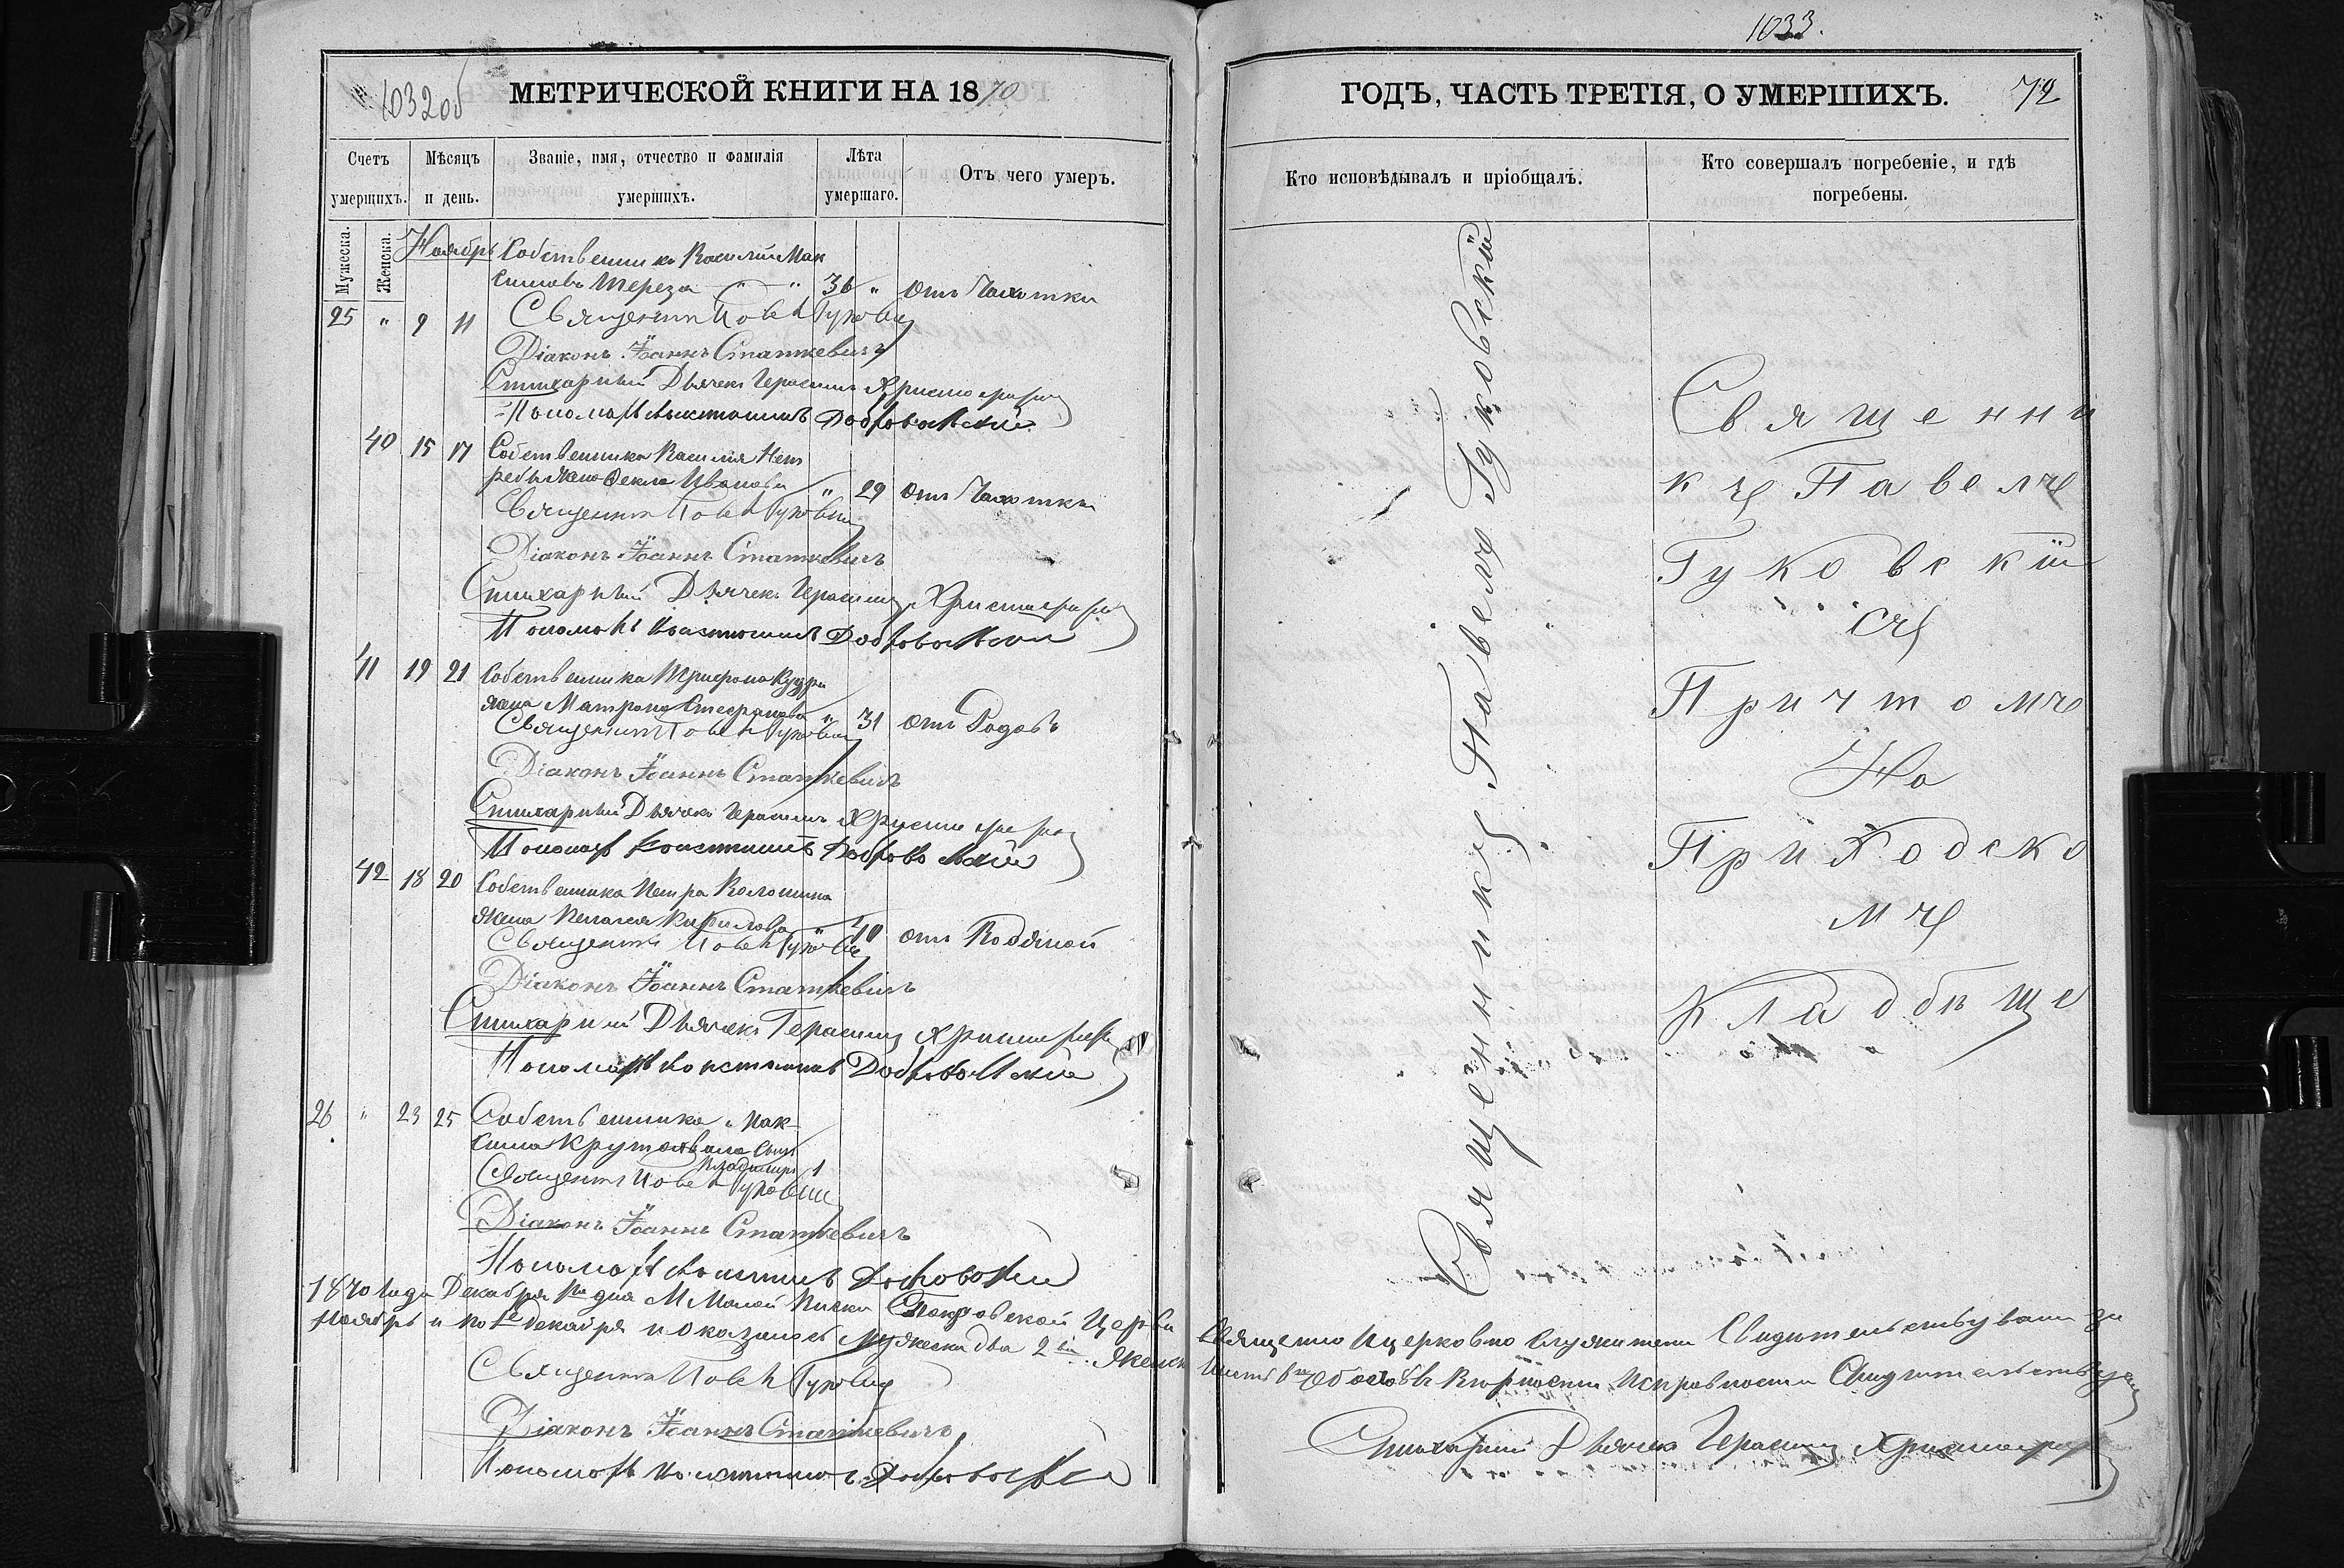 1032об
МЕТРИЧЕСКОЙ КНИГИ НА 1870
Счетъ умершихъ.
Мѣсяцъ и день.
Званіе, имя, отчество и фамилія умершихъ.
Лѣта умершаго.
Отъ чего умеръ.
Мужеска.
Женска.
Ноябрь Собственникъ Василій Мак
симовъ Шереза " " 36 " Отъ Чахотки
25 " 9 11 Священникъ Павелъ Гуковскій
Діаконъ Іоаннъ Статкевичъ
Стихарный Дьячекъ Герасимъ Христофоров
Пономарь Константинъ Добровольскій
40 15 17 Собственника Василія
жена Фекла Иванова " 29 Отъ Чахотки
Священникъ Павелъ Гуковскій
Діаконъ Іоаннъ Статкевичъ
Стихарный Дьячекъ Герасимъ Христофоров
Пономарь Константинъ Добровольскій
41 19 21 Собственника Трифона Кудри
жена Матрона Стефанова " 31 отъ Родовъ
Священникъ Павелъ Гуковскій
Діаконъ Іоаннъ Статкевичъ
Стихарный Дьячекъ Герасимъ Христофоров
Пономарь Константинъ Добровольскій
42 18 20 Собственника Петра
жена Пелагея Кирилова " 40 отъ Водяной
Священникъ Павелъ Гуковскій
Діаконъ Іоаннъ Статкевичъ
Стихарный Дьячекъ Герасимъ Христофоров
Пономарь Константинъ Добровольскій
26 " 23 25 Собственника Мак-
сима сынъ
Владимиръ 1
Священникъ Павелъ Гуковскій
Діаконъ Іоаннъ Статкевичъ
Пономарь Константинъ Добровольскій
1870 года Декабря дня М Малой Покровской Церкви
Ноябрь и по 1е декабря и оказалось Мужеска два 2 Женск
Священникъ Павелъ Гуковскій
Діаконъ Іоаннъ Статкевичъ
Пономарь Константинъ Добровольскій
1033.
ГОДЪ, ЧАСТЬ ТРЕТІЯ, О УМЕРШИХЪ.
72
Кто исповѣдывалъ и пріобщалъ.
Кто совершалъ погребеніе, и гдѣ
погребены.
Священникъ Павелъ Гуковскій
Священни
къ Павелъ
Гуковскій
съ
Причтомъ
На
Приходско
мъ
Кладбище
Священно Церковно служители Свидѣтельствовали за
обоковъ Вѣрности Исправности Свидѣтельствуемъ
Стихарный Дьячекъ Герасимъ Христофоров